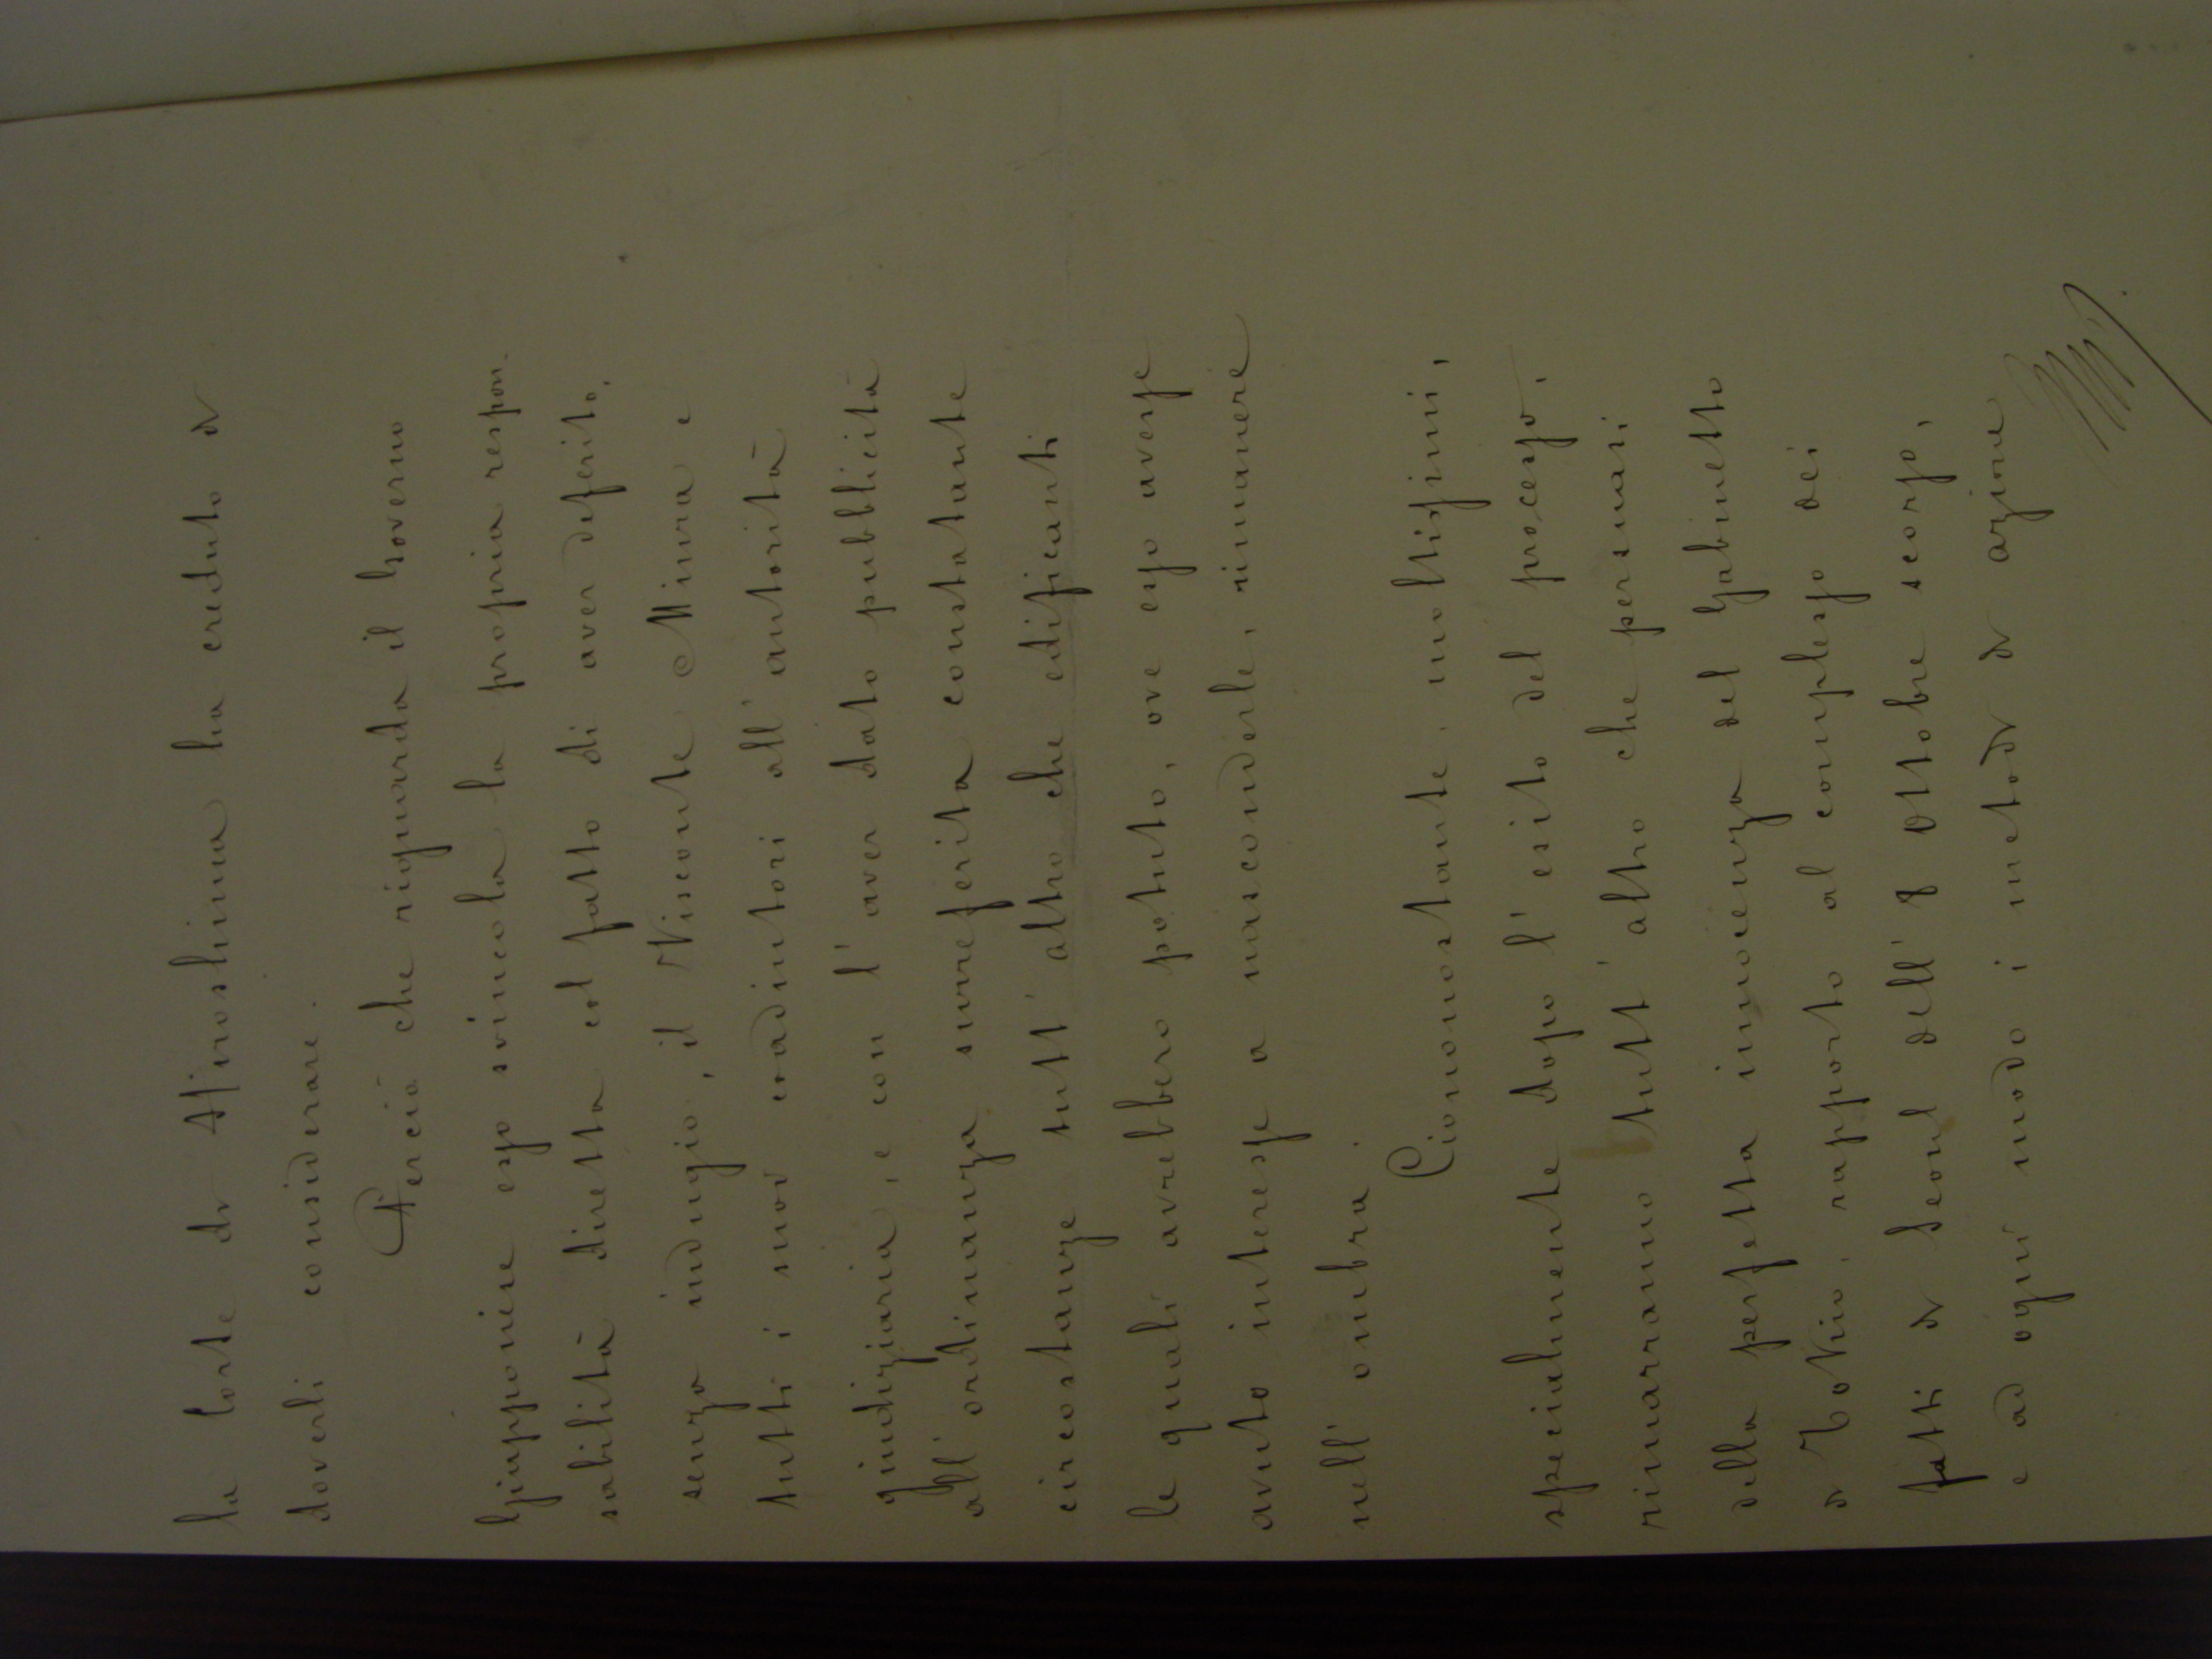 la Corte di Hiroshima ha creduto di
doverli considerare.
Perciò che riguarda il Governo
Giapponese esso svincola la propria respon-
sabilità diretta col fatto di aver deferito,
senza indugio, il Visconte Miura e
tutti i suoi coadiutori all'autorità
giudiziaria, e con l'aver dato pubblicità
all'ordinanza surreferita constatante
circostanze tutt'altro che edificanti
le quali avrebbero potuto, ove esso avesse
avuto interesse a nasconderle, rimanere
nell'ombra.
Ciononostante, moltissimi,
specialmente dopo l'esito del processo,
rimarranno tutt'altro che persuasi
della perfetta innocenza del Gabinetto
di Tokio, rapporto al complesso dei
fatti di Seoul dell'8 Ottobre scorso,
e ad ogni modo i metodi di azione